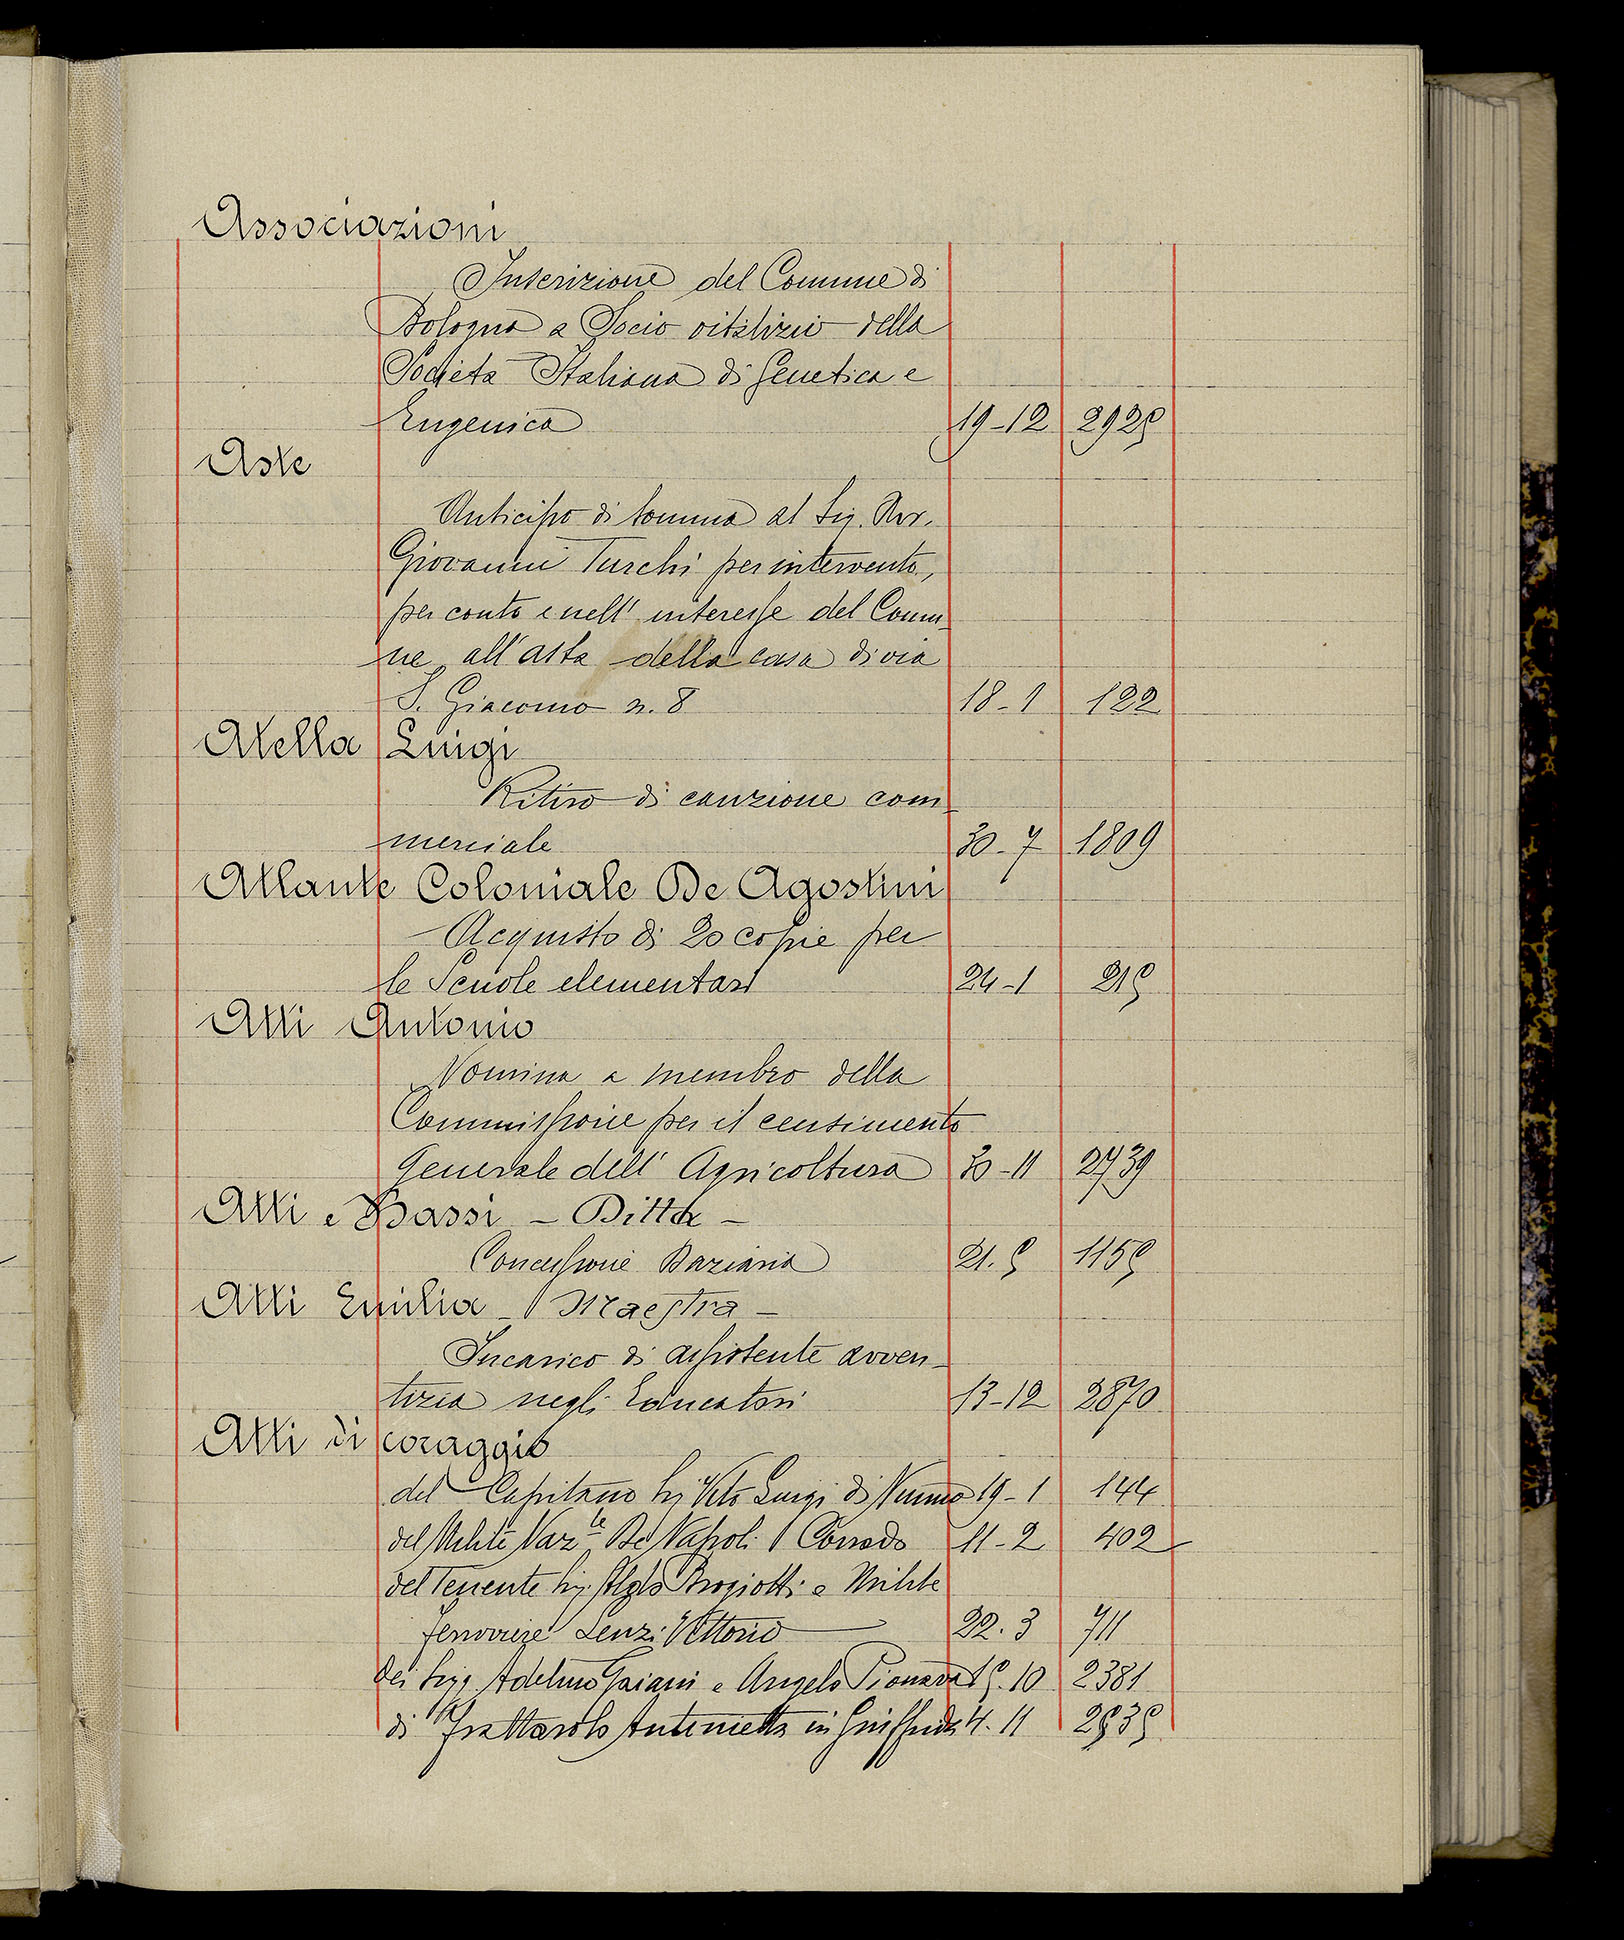 Associazioni
Inscrizione del Comune di
Bologna a Socio vitalizio della
Società Italiana di Genetica e
Eugenica 19-12 2925
Aste
Anticipo di somma al Sig. Avv.
Giovanni Turchi per intervento,
per conto e nell' interesse del Comu-
ne, all'asta della casa di via
S. Giacomo n. 8 18-1 122
Atella Luigi
Ritiro di cauzione com-
merciale 30-7 1809
Atlante Coloniale De Agostini
Acquisto di 20 copie per
le Scuole elementari 24-1 215
Atti Antonio
Nomina a membro della
Commissione per il censimento
Generale dell' Agricoltura 30-11 2739
Atti e Bassi - Ditta -
Concessione Daziaria 21.5 1155
Atti Emilia - Maestra -
Incarico di assistente avven-
tizia negli Educatori 13-12 2870
Atti di coraggio
del Capitano Sig. Vito Luigi di Nunno 19-1 144
del Milite Naz.le De Napoli Corrado 11-2 402
del Tenente Sig. Aldo Brogiotti e Milite
ferroviere Lenzi Vittorio 22.3 711
dei Sigg. Adelmo Gaiani e Angelo Pionava 15.10 2381
di Frattarolo Antonietta in Giuffrida 4.11 2535